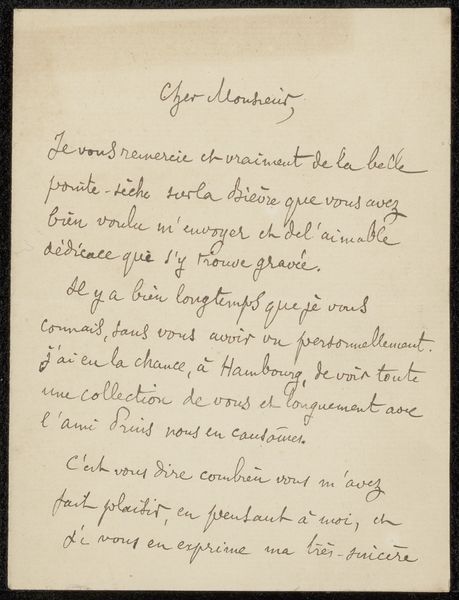 Cher Monsieur,
Je vous remercie et vraiment de la belle
pointe-sèche sur la Bièvre que vous avez
bien voulu m'envoyer et de l'aimable
dédicace que s'y trouve gravée.
Il y a bien longtemps que je vous
connais, sans vous avoir vu personnellement.
J'ai eu la chance, à Hambourg, de voir toute
une collection de vous et longuement avec
l'ami nous en causâmes.
C'est vous dire combien vous m'avez
fait plaisir, en pensant à moi, et
je vous en exprime ma très-sincère